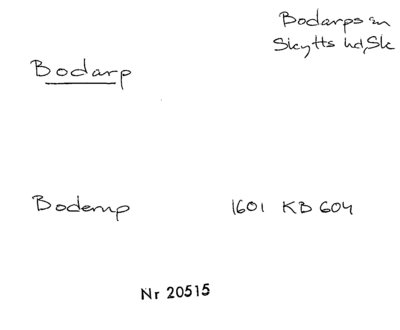 Bodarps sn
Skytts hd, Sk
Bodarp
Boderup 1601 KB 604
Nr 20515